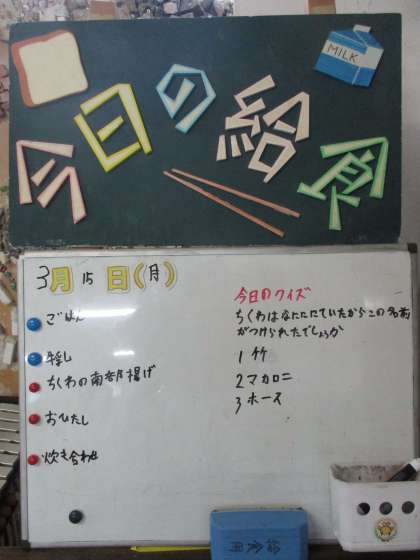 MILK
今日の給食
3月15日(月)
ごはん
牛乳
ちくわの南部揚げ
おひたし
炊き合わせ
今日のクイズ
ちくわはなにににていたからこの名前
がつけられたでしょうか
1 竹
2 マカロニ
3 ホース
給食用